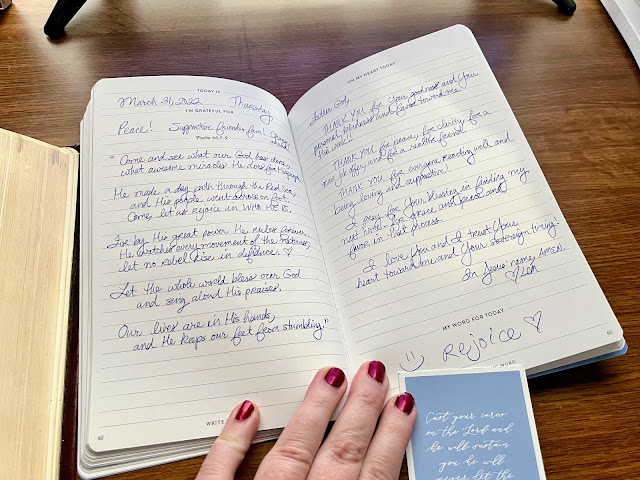 TODAY IS
March 31, 2022 Thursday
I'M GRATEFUL FOR
Peace! Supportive friends & fam!
Psalm 66:5-9
"Come and see what our God has done,
what awesome miracles He does for His people.
He made a dry path through the Red Sea,
and His people went across on foot.
Come, let us rejoice in WHO HE IS.
For by His great power He rules forever.
He watches every movement of the nations;
let no rebel rise in defiance. ♡
Let the whole world bless our God
and sing aloud His praises.
Our lives are in His hands,
and He keeps our feet from stumbling."
WRITE
62
ON MY HEART TODAY
Father God,
THANK YOU for Your goodness and Your
personal kindness and favor toward me.
THANK YOU for peace, for clarity, for a
new job offer, and for a healthy family
THANK YOU for everyone reacting well and
being loving and supportive!
I pray for Your blessing in finding my
next hire - for grace and peace and
favor in that process.
I love You and I trust Your
heart toward me and Your sovereign timing!
In Jesus' name, AMEN.
♡ LCM
MY WORD FOR TODAY
Rejoice ♡
63
WORD
Cast your cares
on the Lord and
he will sustain
you; he will
never let the